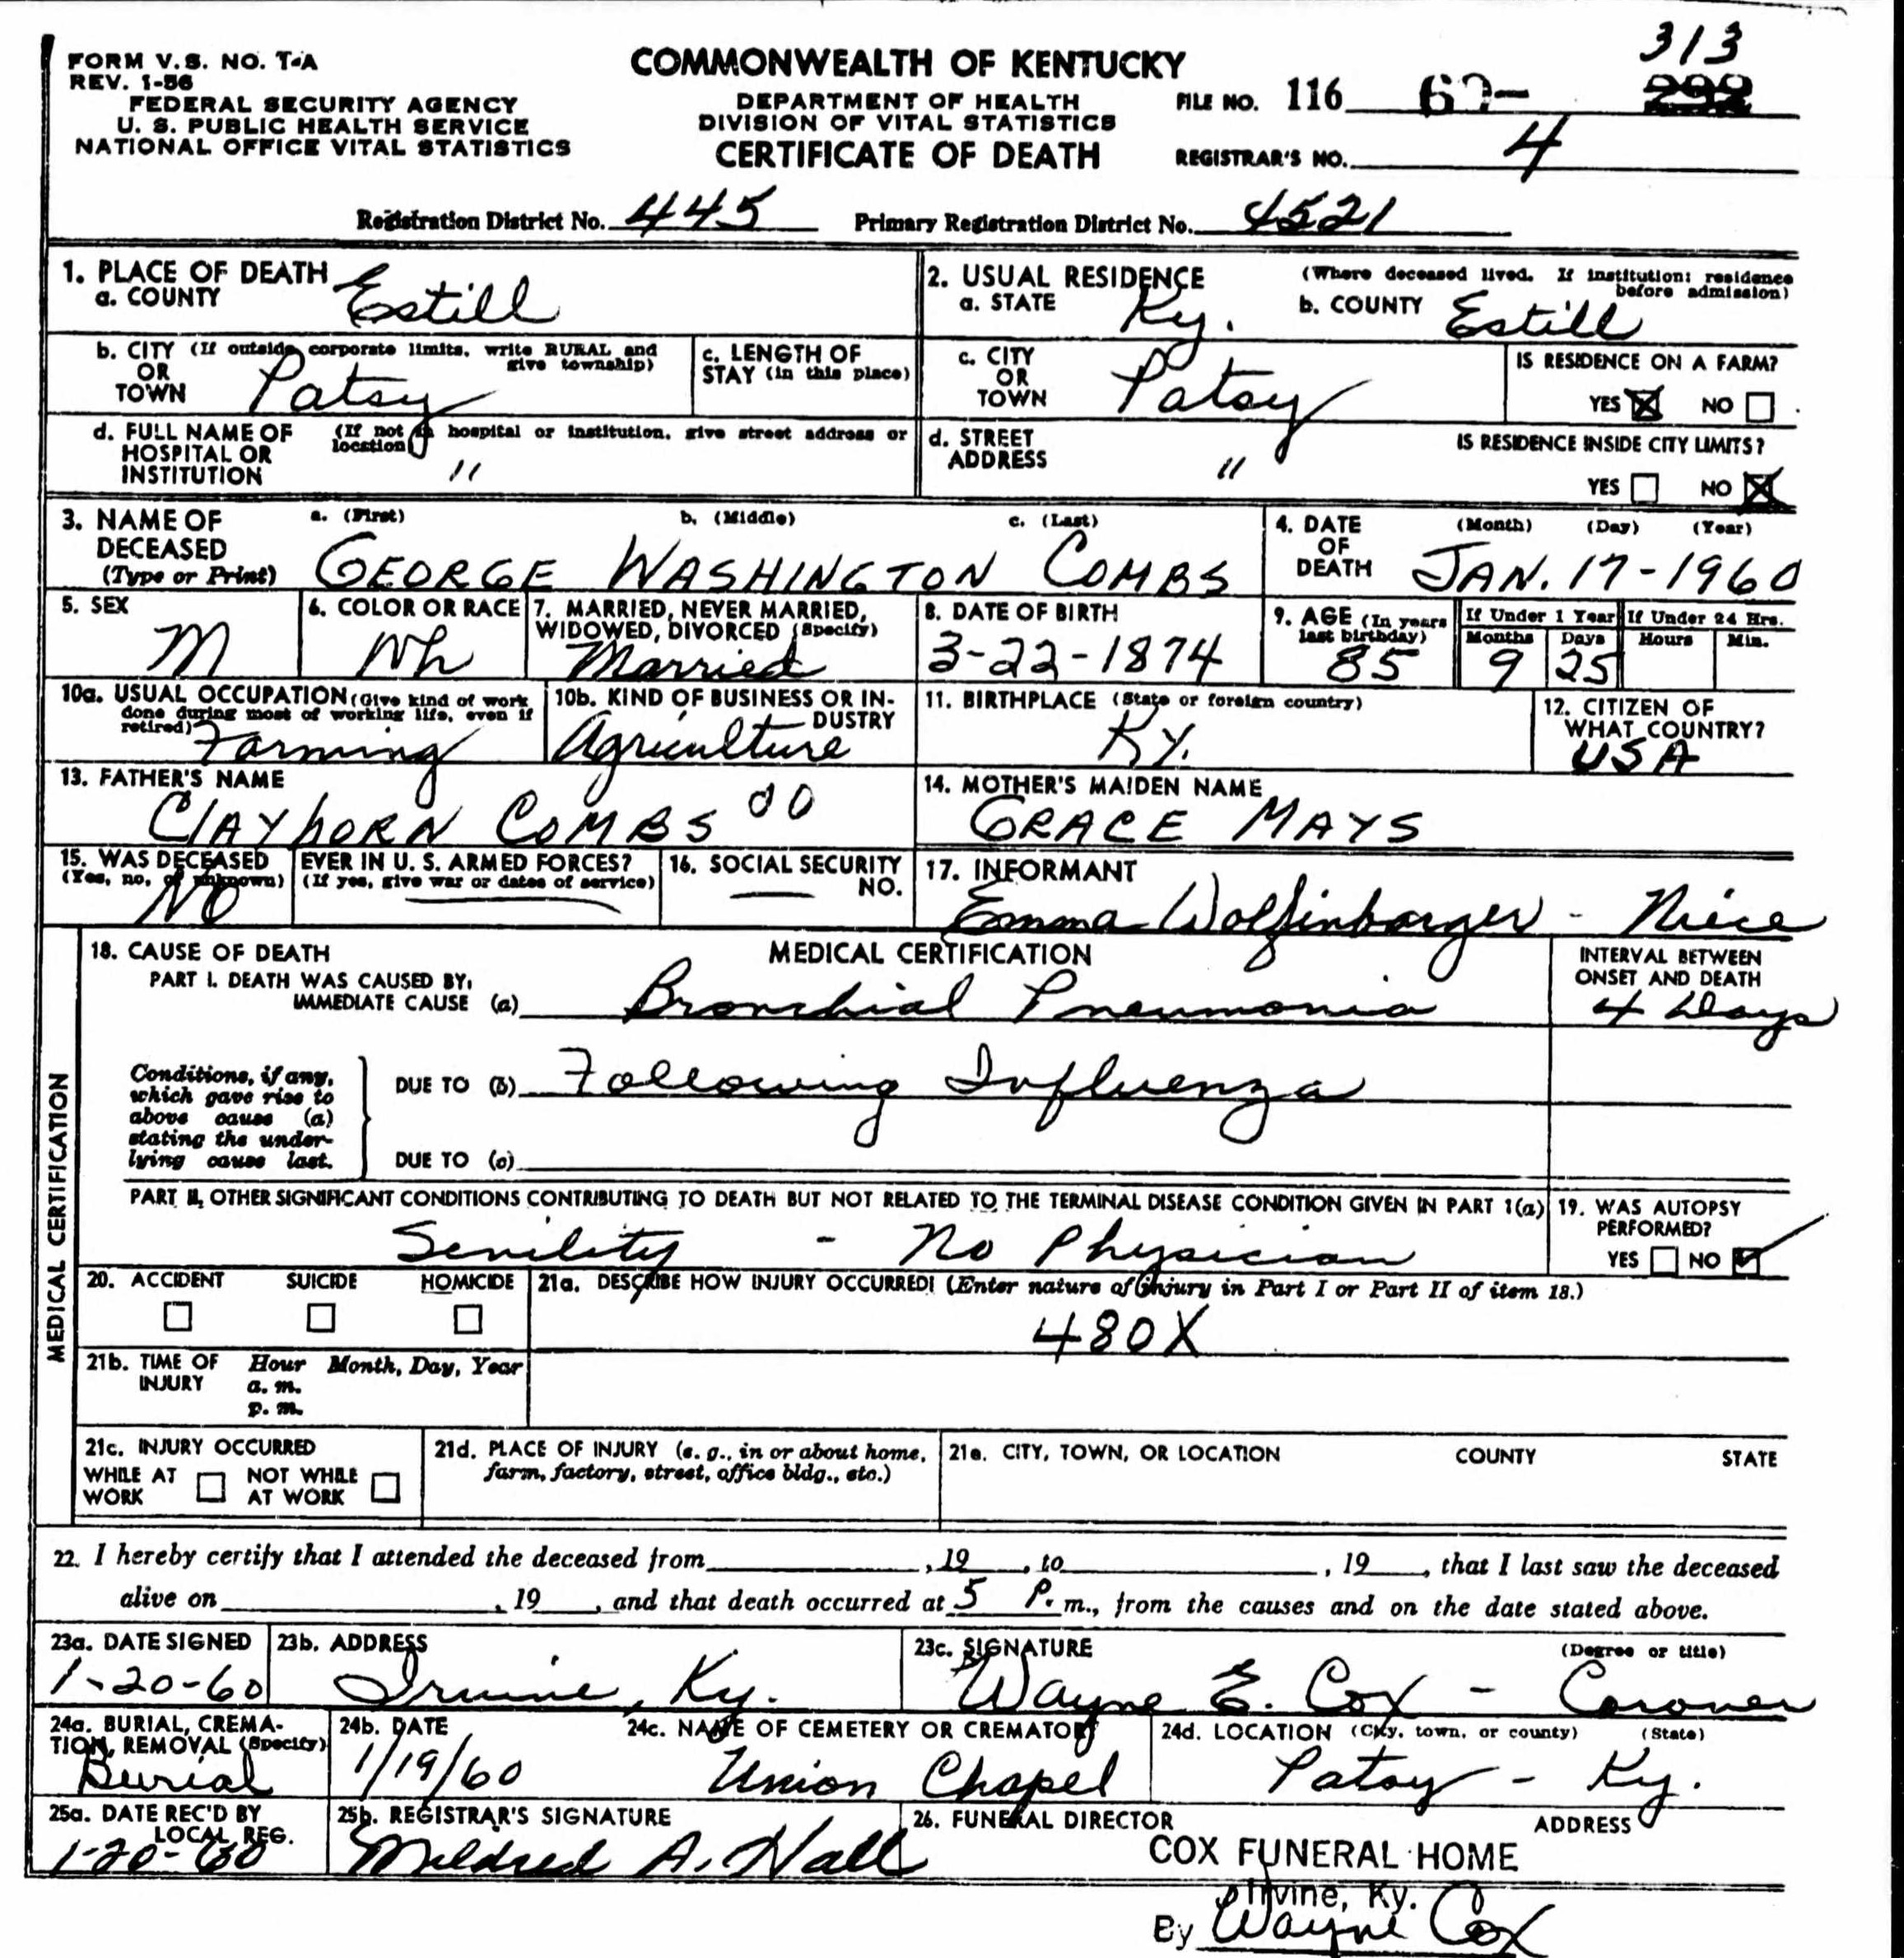 313
FORM V.S. NO. T-A
REV. 1-56
FEDERAL SECURITY AGENCY
U. S. PUBLIC HEALTH SERVICE
NATIONAL OFFICE VITAL STATISTICS
COMMONWEALTH OF KENTUCKY
DEPARTMENT OF HEALTH
DIVISION OF VITAL STATISTICS
CERTIFICATE OF DEATH
FILE NO. 116 60-
REGISTRAR'S NO. 4
Registration District No. 445 Primary Registration District No. 4521
1. PLACE OF DEATH
a. COUNTY Estill
2. USUAL RESIDENCE (Where deceased lived. If institution: residence before admission)
a. STATE Ky. b. COUNTY Estill
b. CITY (If outside corporate limits, write RURAL and give township)
OR
TOWN Patsy
c. LENGTH OF
STAY (in this place)
c. CITY
OR
TOWN Patsy
IS RESIDENCE ON A FARM?
YES ☒ NO ☐
d. FULL NAME OF (If not in hospital or institution, give street address or location)
HOSPITAL OR
INSTITUTION "
d. STREET
ADDRESS "
IS RESIDENCE INSIDE CITY LIMITS?
YES ☐ NO ☒
3. NAME OF
DECEASED
(Type or Print)
a. (First) b. (Middle) c. (Last)
GEORGE WASHINGTON COMBS
4. DATE
OF
DEATH
(Month) (Day) (Year)
JAN. 17-1960
5. SEX
M
6. COLOR OR RACE
Wh
7. MARRIED, NEVER MARRIED,
WIDOWED, DIVORCED (Specify)
Married
8. DATE OF BIRTH
3-22-1874
9. AGE (In years
last birthday)
85
If Under 1 Year If Under 24 Hrs.
Months Days Hours Min.
9 25
10a. USUAL OCCUPATION (Give kind of work
done during most of working life, even if
retired) Farming
10b. KIND OF BUSINESS OR IN-
DUSTRY
Agriculture
11. BIRTHPLACE (State or foreign country)
Ky.
12. CITIZEN OF
WHAT COUNTRY?
USA
13. FATHER'S NAME
ClAYhORN COMBS 00
14. MOTHER'S MAIDEN NAME
GRACE MAYS
15. WAS DECEASED EVER IN U. S. ARMED FORCES?
(Yes, no, or unknown) (If yes, give war or dates of service)
NO
16. SOCIAL SECURITY
NO.
17. INFORMANT
Emma Wolfinbarger - Niece
MEDICAL CERTIFICATION
18. CAUSE OF DEATH
MEDICAL CERTIFICATION
INTERVAL BETWEEN
ONSET AND DEATH
PART I. DEATH WAS CAUSED BY:
IMMEDIATE CAUSE (a) Bronchial Pneumonia 4 Days
Conditions, if any,
which gave rise to
above cause (a)
stating the under-
lying cause last.
DUE TO (b) Following Influenza
DUE TO (c)
PART II, OTHER SIGNIFICANT CONDITIONS CONTRIBUTING TO DEATH BUT NOT RELATED TO THE TERMINAL DISEASE CONDITION GIVEN IN PART 1(a)
Senility - No Physician
19. WAS AUTOPSY
PERFORMED?
YES ☐ NO ☑
20. ACCIDENT SUICIDE HOMICIDE
☐ ☐ ☐
21a. DESCRIBE HOW INJURY OCCURRED! (Enter nature of injury in Part I or Part II of item 18.)
480X
21b. TIME OF
INJURY
Hour Month, Day, Year
a. m.
p. m.
21c. INJURY OCCURRED
WHILE AT
WORK ☐
NOT WHILE
AT WORK ☐
21d. PLACE OF INJURY (e. g., in or about home,
farm, factory, street, office bldg., etc.)
21e. CITY, TOWN, OR LOCATION COUNTY STATE
22. I hereby certify that I attended the deceased from , 19 , to , 19 , that I last saw the deceased
alive on , 19 , and that death occurred at 5 P. m., from the causes and on the date stated above.
23a. DATE SIGNED
1-20-60
23b. ADDRESS
Irvine, Ky.
23c. SIGNATURE (Degree or title)
Wayne E. Cox - Coroner
24a. BURIAL, CREMA-
TION, REMOVAL (Specify)
Burial
24b. DATE
1/19/60
24c. NAME OF CEMETERY OR CREMATORY
Union Chapel
24d. LOCATION (City, town, or county) (State)
Patsy - Ky.
25a. DATE REC'D BY
LOCAL REG.
1-20-60
25b. REGISTRAR'S SIGNATURE
Mildred A. Hall
26. FUNERAL DIRECTOR ADDRESS
COX FUNERAL HOME
Irvine, Ky.
By Wayne Cox